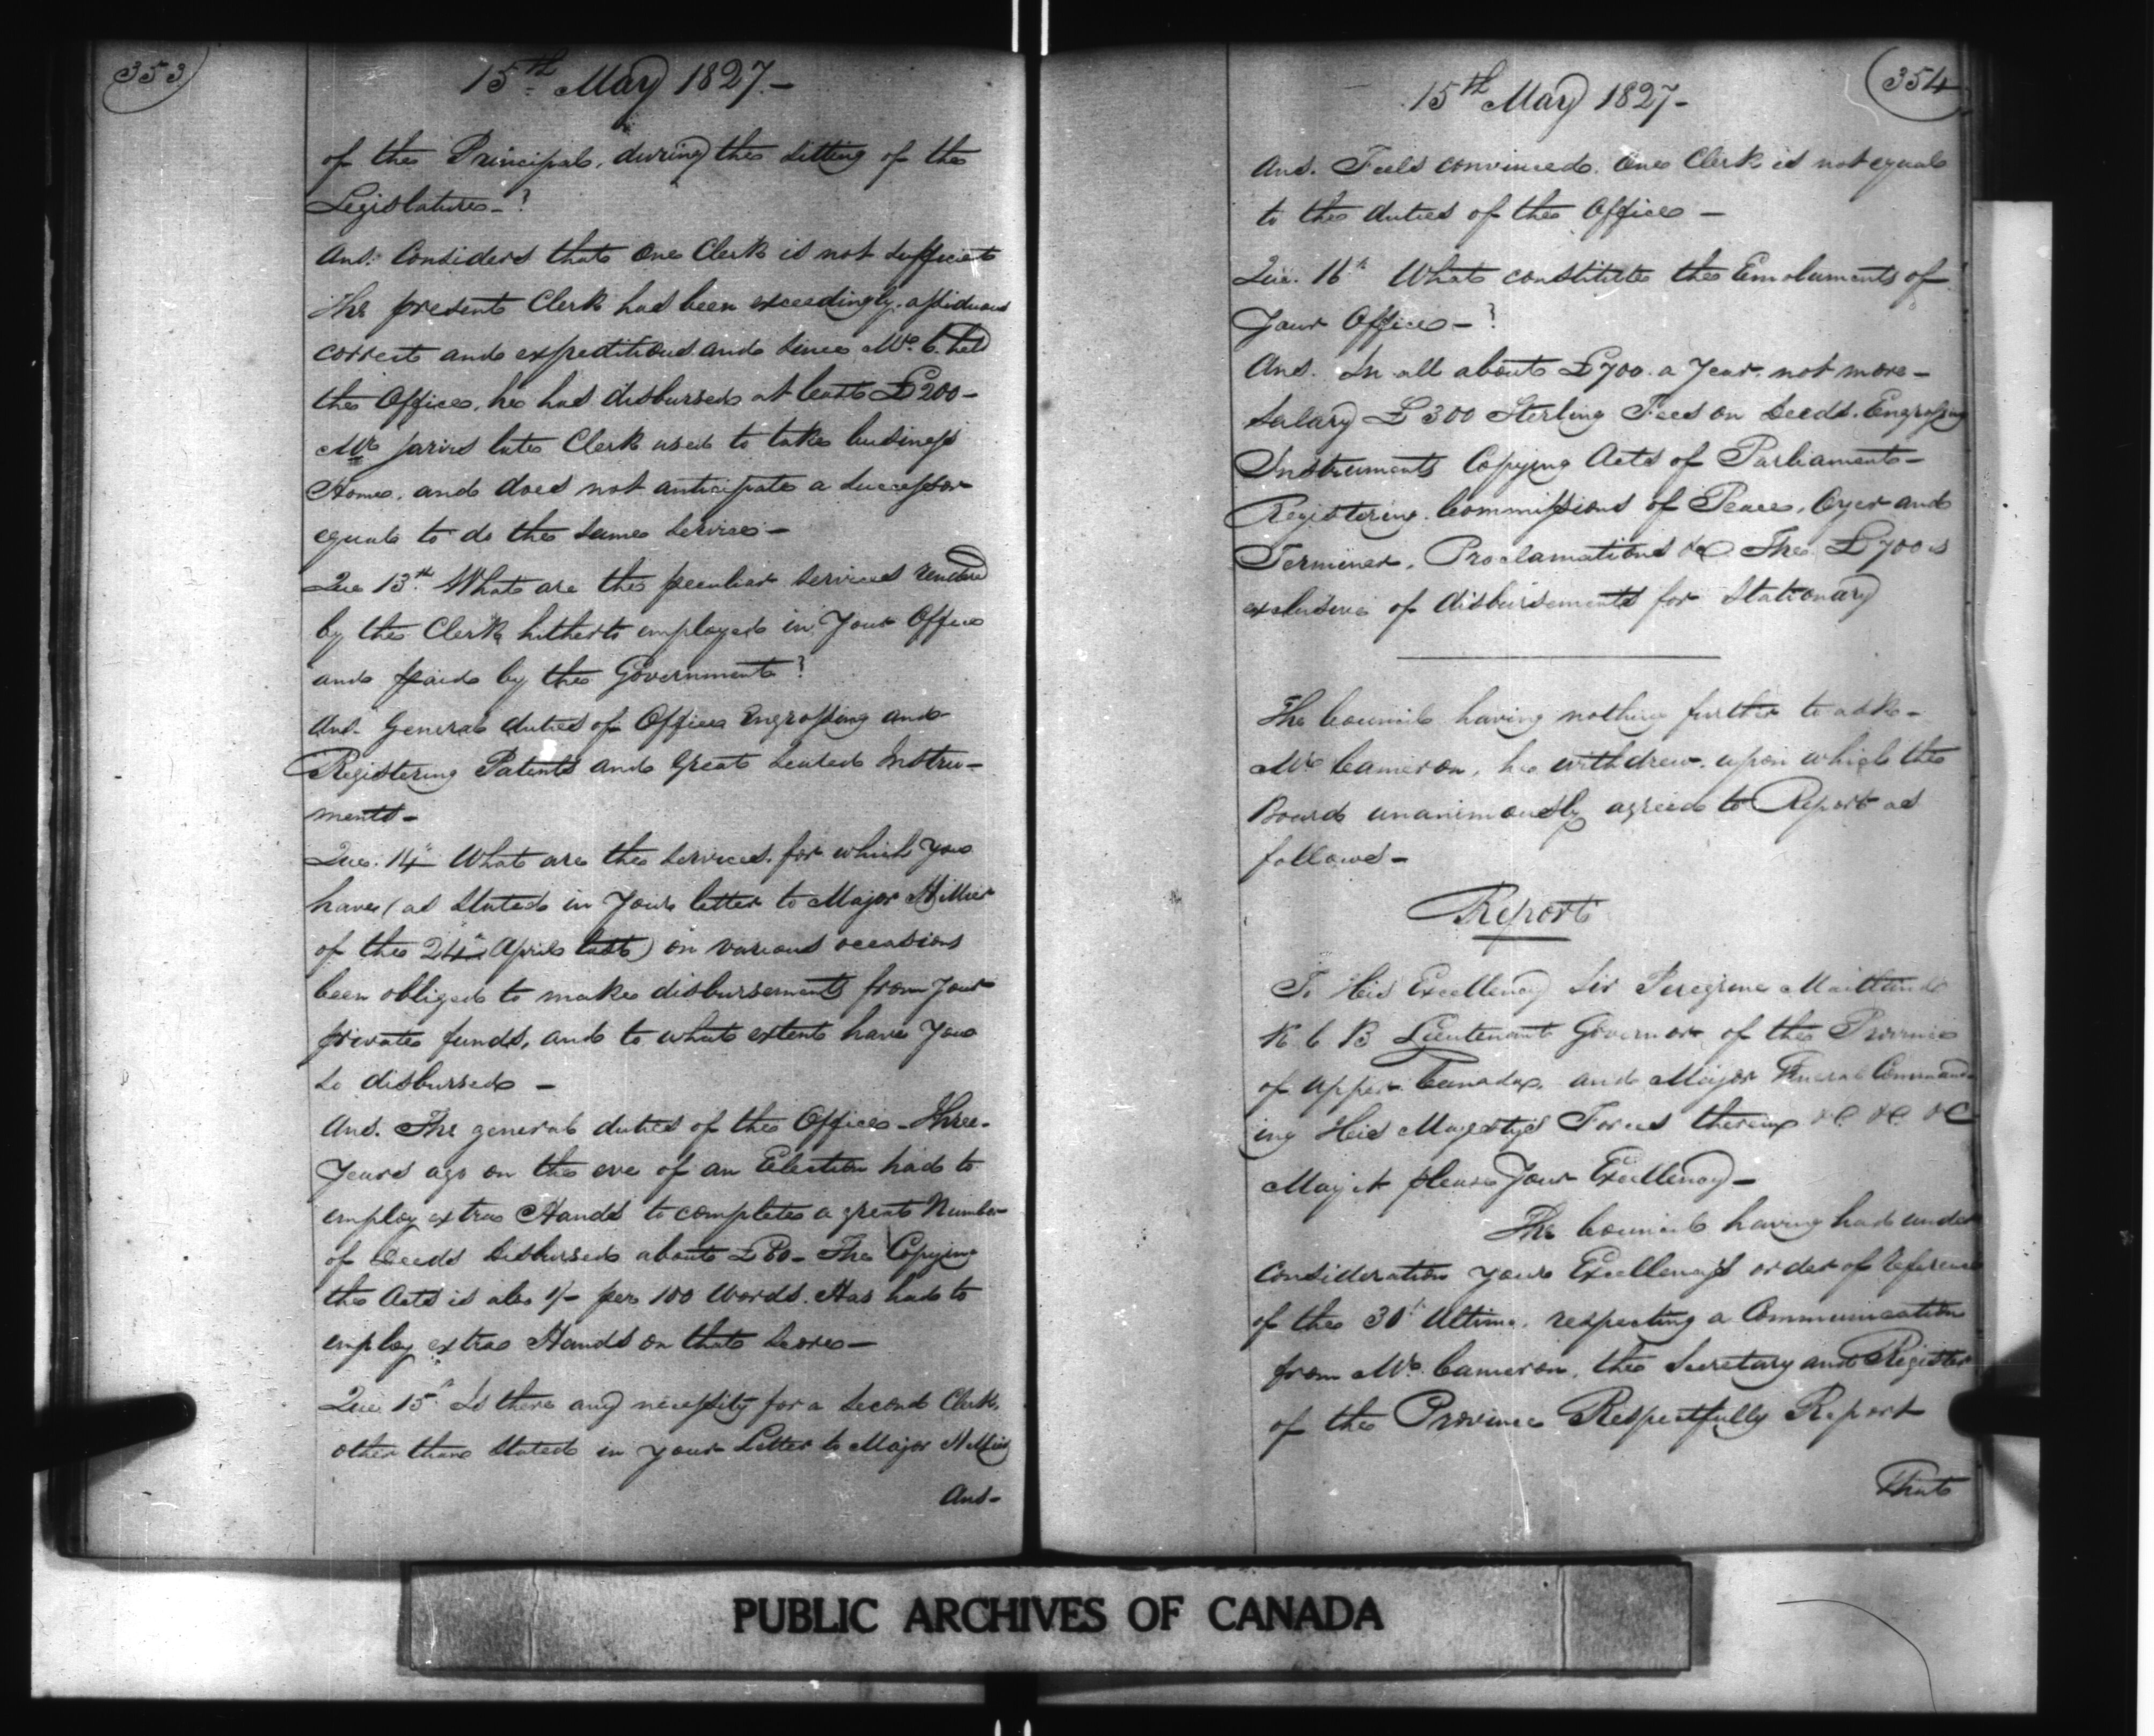 353
15th May 1827.-
of the Principal, during the sitting of the
Legislature-?
Ans. Considers that One Clerk is not sufficient
the present Clerk has been exceedingly assiduous
correct and expeditious and since Mr C. held
the Office, he has disbursed at least £200-
Mr Jarvis late Clerk used to take business
Home, and does not anticipate a successor
equal to do the same service-
Que 13th What are the peculiar services rendered
by the Clerk hitherto employed in Your Office
and paid by the Government?
Ans. General duties of Office Engrossing and
Registering Patents and Great Sealed Instru-
ments-
Que. 14th What are the Services, for which You
have (as Stated in Your letter to Major Hillier
of the 24th April last) on various occasions
been obliged to make disbursements from Your
private funds, and to what extent have You
so disbursed -
Ans. The general duties of the Office - Three
Years ago on the eve of an Election had to
employ extra Hands to complete a great Number
of Deeds Disbursed about £80- The Copying
the Acts is also 1/- per 100 Words. Has had to
employ extra Hands on that Score-
Que. 15th Is there any necessity for a Second Clerk,
other than Stated in your Letter to Major Hillier
Ans-
354
15th May 1827-
Ans. Feels convinced, One Clerk is not equal
to the duties of the Office -
Que. 16th What constitute the Emoluments of
Your Office-?
Ans. In all about £700 a Year, not more-
Salary £300 Sterling Fees on Deeds. Engrossing
Instruments Copying Acts of Parliament-
Registering Commissions of Peace, Oyer and
Terminer, Proclamations &c The £700 is
exclusive of disbursements for Stationary
The Council having nothing further to ask-
Mr Cameron, he withdrew, upon which the
Board unanimously agreed to Report as
follows-
Report
To His Excellency Sir Peregrine Maitland
K C B Lieutenant Governor of the Province
of Upper Canada, and Major General Command-
ing His Majesty's Forces therein &c &c &c
May it please Your Excellency-
The Council having had under
Consideration your Excellency's order of reference
of the 30th Ultimo, respecting a Communication
from Mr Cameron, the Secretary and Register
of the Province Respectfully Report
That
PUBLIC ARCHIVES OF CANADA